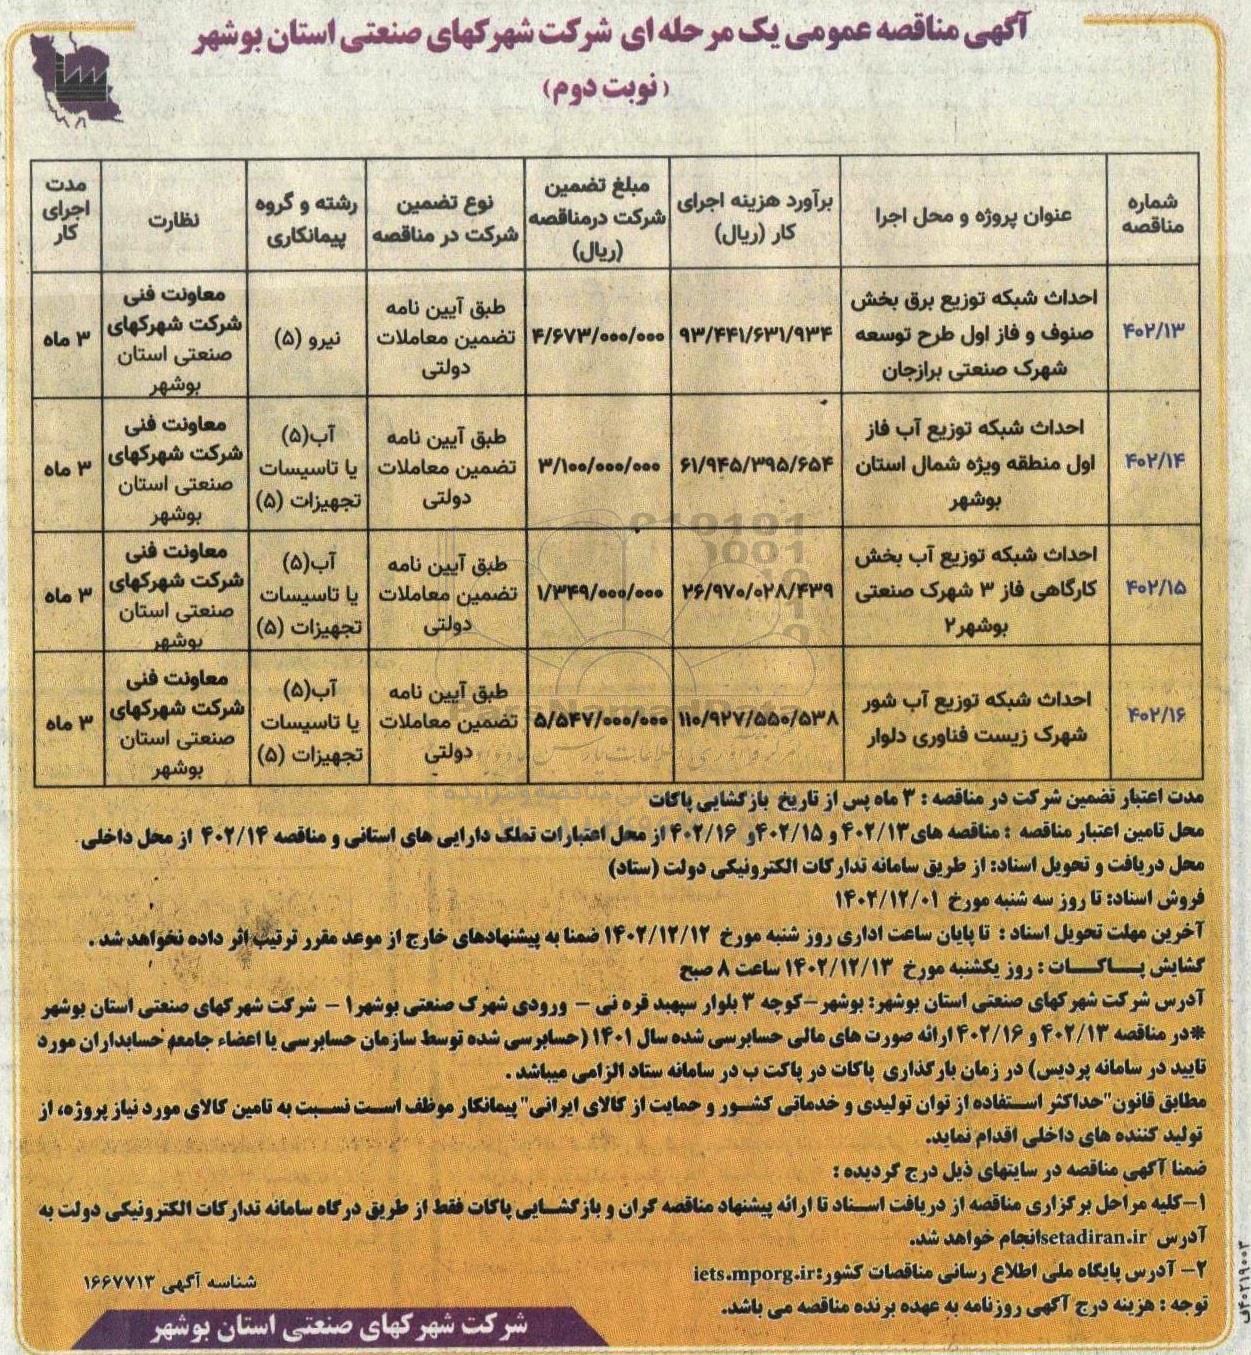 آگهی مناقصه عمومی یک مرحله ای شرکت شهرکهای صنعتی استان بوشهر
(نوبت دوم)
شماره مناقصه | عنوان پروژه و محل اجرا | برآورد هزینه اجرای کار (ریال) | مبلغ تضمین شرکت درمناقصه (ریال) | نوع تضمین شرکت در مناقصه | رشته و گروه پیمانکاری | نظارت | مدت اجرای کار
۴۰۲/۱۳ | احداث شبکه توزیع برق بخش صنوف و فاز اول طرح توسعه شهرک صنعتی برازجان | ۹۳/۴۴۱/۶۳۱/۹۳۴ | ۴/۶۷۳/۰۰۰/۰۰۰ | طبق آیین نامه تضمین معاملات دولتی | نیرو (۵) | معاونت فنی شرکت شهرکهای صنعتی استان بوشهر | ۳ ماه
۴۰۲/۱۴ | احداث شبکه توزیع آب فاز اول منطقه ویژه شمال استان بوشهر | ۶۱/۹۴۵/۳۹۵/۶۵۴ | ۳/۱۰۰/۰۰۰/۰۰۰ | طبق آیین نامه تضمین معاملات دولتی | آب(۵) یا تاسیسات تجهیزات (۵) | معاونت فنی شرکت شهرکهای صنعتی استان بوشهر | ۳ ماه
۴۰۲/۱۵ | احداث شبکه توزیع آب بخش کارگاهی فاز ۳ شهرک صنعتی بوشهر۲ | ۲۶/۹۷۰/۰۲۸/۴۳۹ | ۱/۳۴۹/۰۰۰/۰۰۰ | طبق آیین نامه تضمین معاملات دولتی | آب(۵) یا تاسیسات تجهیزات (۵) | معاونت فنی شرکت شهرکهای صنعتی استان بوشهر | ۳ ماه
۴۰۲/۱۶ | احداث شبکه توزیع آب شور شهرک زیست فناوری دلوار | ۱۱۰/۹۲۷/۵۵۰/۵۳۸ | ۵/۵۴۷/۰۰۰/۰۰۰ | طبق آیین نامه تضمین معاملات دولتی | آب(۵) یا تاسیسات تجهیزات (۵) | معاونت فنی شرکت شهرکهای صنعتی استان بوشهر | ۳ ماه
مدت اعتبار تضمین شرکت در مناقصه : ۳ ماه پس از تاریخ بازگشایی پاکات
محل تامین اعتبار مناقصه : مناقصه های۴۰۲/۱۳ و ۴۰۲/۱۵و ۴۰۲/۱۶ از محل اعتبارات تملک دارایی های استانی و مناقصه ۴۰۲/۱۴ از محل داخلی
محل دریافت و تحویل اسناد: از طریق سامانه تدارکات الکترونیکی دولت (ستاد)
فروش اسناد: تا روز سه شنبه مورخ ۱۴۰۲/۱۲/۰۱
آخرین مهلت تحویل اسناد : تا پایان ساعت اداری روز شنبه مورخ ۱۴۰۲/۱۲/۱۲ ضمنا به پیشنهادهای خارج از موعد مقرر ترتیب اثر داده نخواهد شد .
گشایش پاکات : روز یکشنبه مورخ ۱۴۰۲/۱۲/۱۳ ساعت ۸ صبح
آدرس شرکت شهرکهای صنعتی استان بوشهر: بوشهر-کوچه ۳ بلوار سپهبد قره نی - ورودی شهرک صنعتی بوشهر۱ - شرکت شهرکهای صنعتی استان بوشهر
*در مناقصه ۴۰۲/۱۳ و ۴۰۲/۱۶ ارائه صورت های مالی حسابرسی شده سال ۱۴۰۱ (حسابرسی شده توسط سازمان حسابرسی یا اعضاء جامعه حسابداران مورد
تایید در سامانه پردیس) در زمان بارگذاری پاکات در پاکت ب در سامانه ستاد الزامی میباشد .
مطابق قانون"حداکثر استفاده از توان تولیدی و خدماتی کشور و حمایت از کالای ایرانی" پیمانکار موظف است نسبت به تامین کالای مورد نیاز پروژه، از
تولید کننده های داخلی اقدام نماید.
ضمنا آگهی مناقصه در سایتهای ذیل درج گردیده :
۱-کلیه مراحل برگزاری مناقصه از دریافت اسناد تا ارائه پیشنهاد مناقصه گران و بازگشایی پاکات فقط از طریق درگاه سامانه تدارکات الکترونیکی دولت به
آدرس setadiran.irانجام خواهد شد.
۲- آدرس پایگاه ملی اطلاع رسانی مناقصات کشور:iets.mporg.ir
توجه : هزینه درج آگهی روزنامه به عهده برنده مناقصه می باشد.
شناسه آگهی ۱۶۶۷۷۱۳
شرکت شهرکهای صنعتی استان بوشهر
۴۰۲۱۹۰۰۳ف